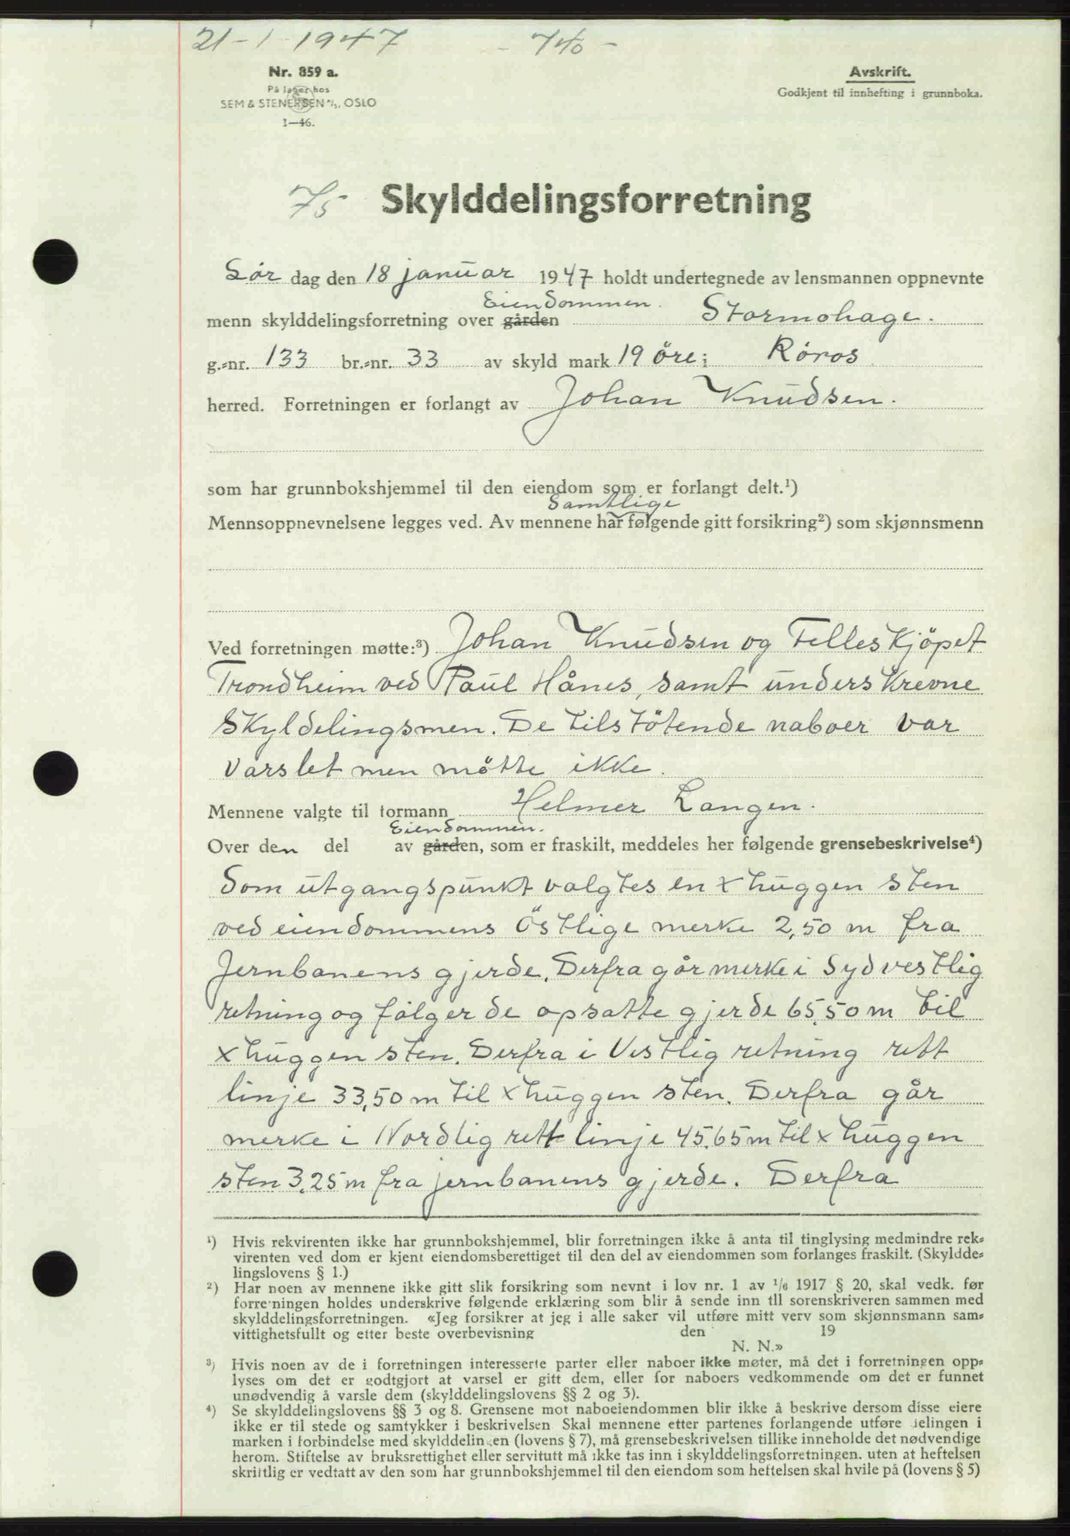 21-1-1947 - 740 -
Nr. 859 a.
På lager hos
SEM & STENERSEN A/S, OSLO
1—46.
Avskrift.
Godkjent til innhefting i grunnboka.
75 Skylddelingsforretning
Lør dag den 18 januar 1947 holdt undertegnede av lensmannen oppnevnte
Eiendommen.
menn skylddelingsforretning over gården Stormohage.
g.-nr. 133 br.-nr. 33 av skyld mark 19 öre i Röros
herred. Forretningen er forlangt av Johan Knudsen.
som har grunnbokshjemmel til den eiendom som er forlangt delt.¹)
Samtlige
Mennsoppnevnelsene legges ved. Av mennene har følgende gitt forsikring²) som skjønnsmenn
Ved forretningen møtte:³) Johan Knudsen og Felleskjöpet
Trondheim ved Paul Hånes, samt underskrevne
Skyldelingsmen. De tilstötende naboer var
varslet men mötte ikke.
Mennene valgte til formann Helmer Langen.
Eiendommen.
Over den del av gården, som er fraskilt, meddeles her følgende grensebeskrivelse⁴)
Som utgangspunkt valgtes en x huggen sten
ved eiendommens östlige merke 2,50 m fra
Jernbanens gjerde. Derfra går merke i Sydvestlig
retning og fölger de opsatte gjerde 65,50 m til
x huggen sten. Derfra i Vestlig retning rett
linje 33,50 m til x huggen sten. Derfra går
merke i Nordlig rett linje 45,65 m til x huggen
sten 3,25 m fra jernbanens gjerde. Derfra
¹) Hvis rekvirenten ikke har grunnbokshjemmel, blir forretningen ikke å anta til tinglysing medmindre rek-
virenten ved dom er kjent eiendomsberettiget til den del av eiendommen som forlanges fraskilt. (Skyldde-
lingslovens § 1.)
²) Har noen av mennene ikke gitt slik forsikring som nevnt i lov nr. 1 av ¹/₆ 1917 § 20, skal vedk. før
forretningen holdes underskrive følgende erklæring som blir å sende inn til sorenskriveren sammen med
skylddelingsforretningen. «Jeg forsikrer at jeg i alle saker vil utføre mitt verv som skjønnsmann sam-
vittighetsfullt og etter beste overbevisning den 19
N. N.»
³) Hvis noen av de i forretningen interesserte parter eller naboer ikke møter, må det i forretningen opp-
lyses om det er godtgjort at varsel er gitt dem, eller for naboers vedkommende om det er funnet
unødvendig å varsle dem (skylddelingslovens §§ 2 og 3).
⁴) Se skylddelingslovens §§ 3 og 8. Grensene mot naboeiendommen blir ikke å beskrive dersom disse eiere
ikke er til stede og samtykker i beskrivelsen Skal mennene etter partenes forlangende utføre delingen i
marken i forbindelse med skylddelingen (lovens § 7), må grensebeskrivelsen tillike inneholde det nødvendige
herom. Stiftelse av bruksrettighet eller servitutt må ikke tas inn i skylddelingsforretningen, uten at heftelsen
skriftlig er vedtatt av den som har grunnbokshjemmel til den eiendom som heftelsen skal hvile på (lovens § 5)